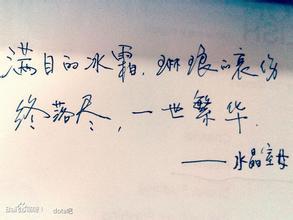 满目的冰霜，琳琅的哀伤
终落尽，一世繁华.
——水晶室女
dota吧